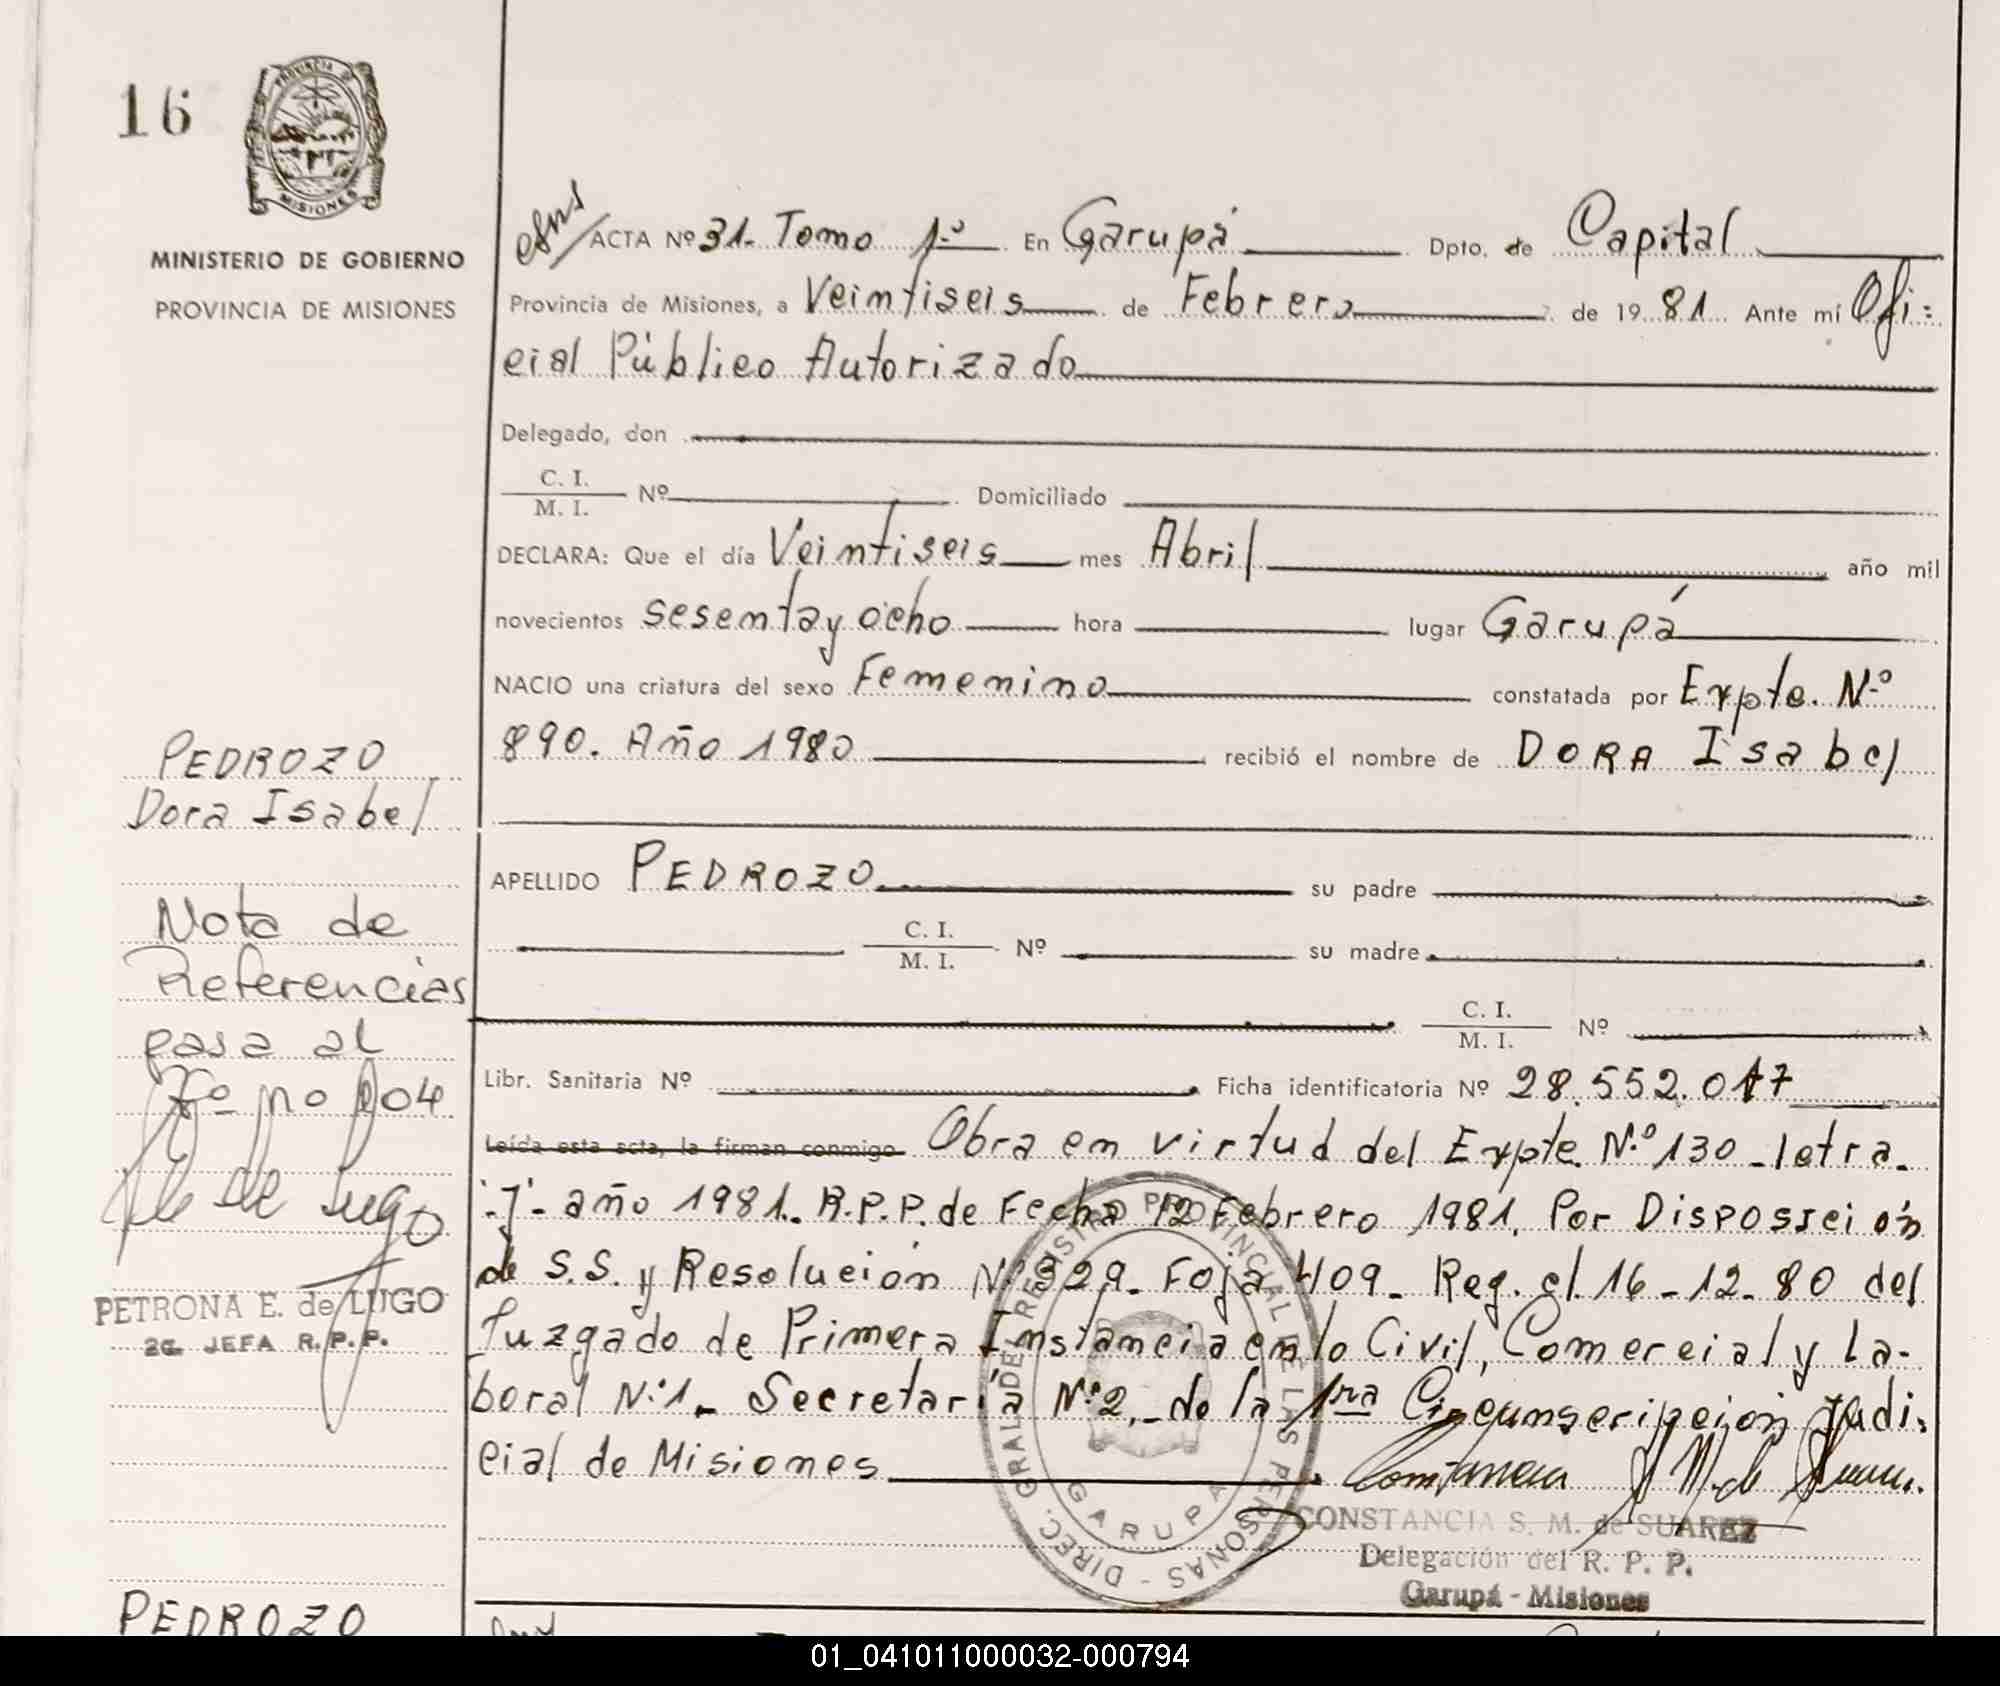 16
PROVINCIA DE
MISIONES
MINISTERIO DE GOBIERNO
PROVINCIA DE MISIONES
ACTA Nº 31. Tomo 1º En Garupá Dpto. de Capital
Provincia de Misiones, a Veintiseis de Febrero de 1981 Ante mí Ofi=
cial Público Autorizado
Delegado, don
C. I.
M. I. Nº Domiciliado
DECLARA: Que el día Veintiseis mes Abril año mil
novecientos sesenta y ocho hora lugar Garupá
NACIO una criatura del sexo Femenino constatada por Expte. Nº
890. Año 1980 recibió el nombre de DORA Isabel
PEDROZO
Dora Isabel
APELLIDO PEDROZO su padre
C. I.
M. I. Nº su madre
C. I.
M. I. Nº
Nota de
Referencias
pasa al
Fº no 204
Libr. Sanitaria Nº Ficha identificatoria Nº 28.552.017
Leída esta acta, la firman conmigo Obra en virtud del Expte. N.º 130 - letra -
-J- año 1981. R.P.P. de Fecha 12 Febrero 1981. Por Disposseión
de S.S. y Resolución Nº 329. Foja 409. Reg. el 16-12-80 del
Juzgado de Primera Instancia en lo Civil, Comercial y La-
boral Nº1. Secretaría Nº2. de la 1ra Circunscripción Judi-
cial de Misiones
de Lugo
PETRONA E. de LUGO
2a. JEFA R. P. P.
DIREC. GRAL. DE REGISTRO PROVINCIAL DE LAS PERSONAS -
GARUPA
Constancia S M. de Suarez
CONSTANCIA S. M. de SUAREZ
Delegación del R. P. P.
Garupá - Misiones
PEDROZO
01_041011000032-000794